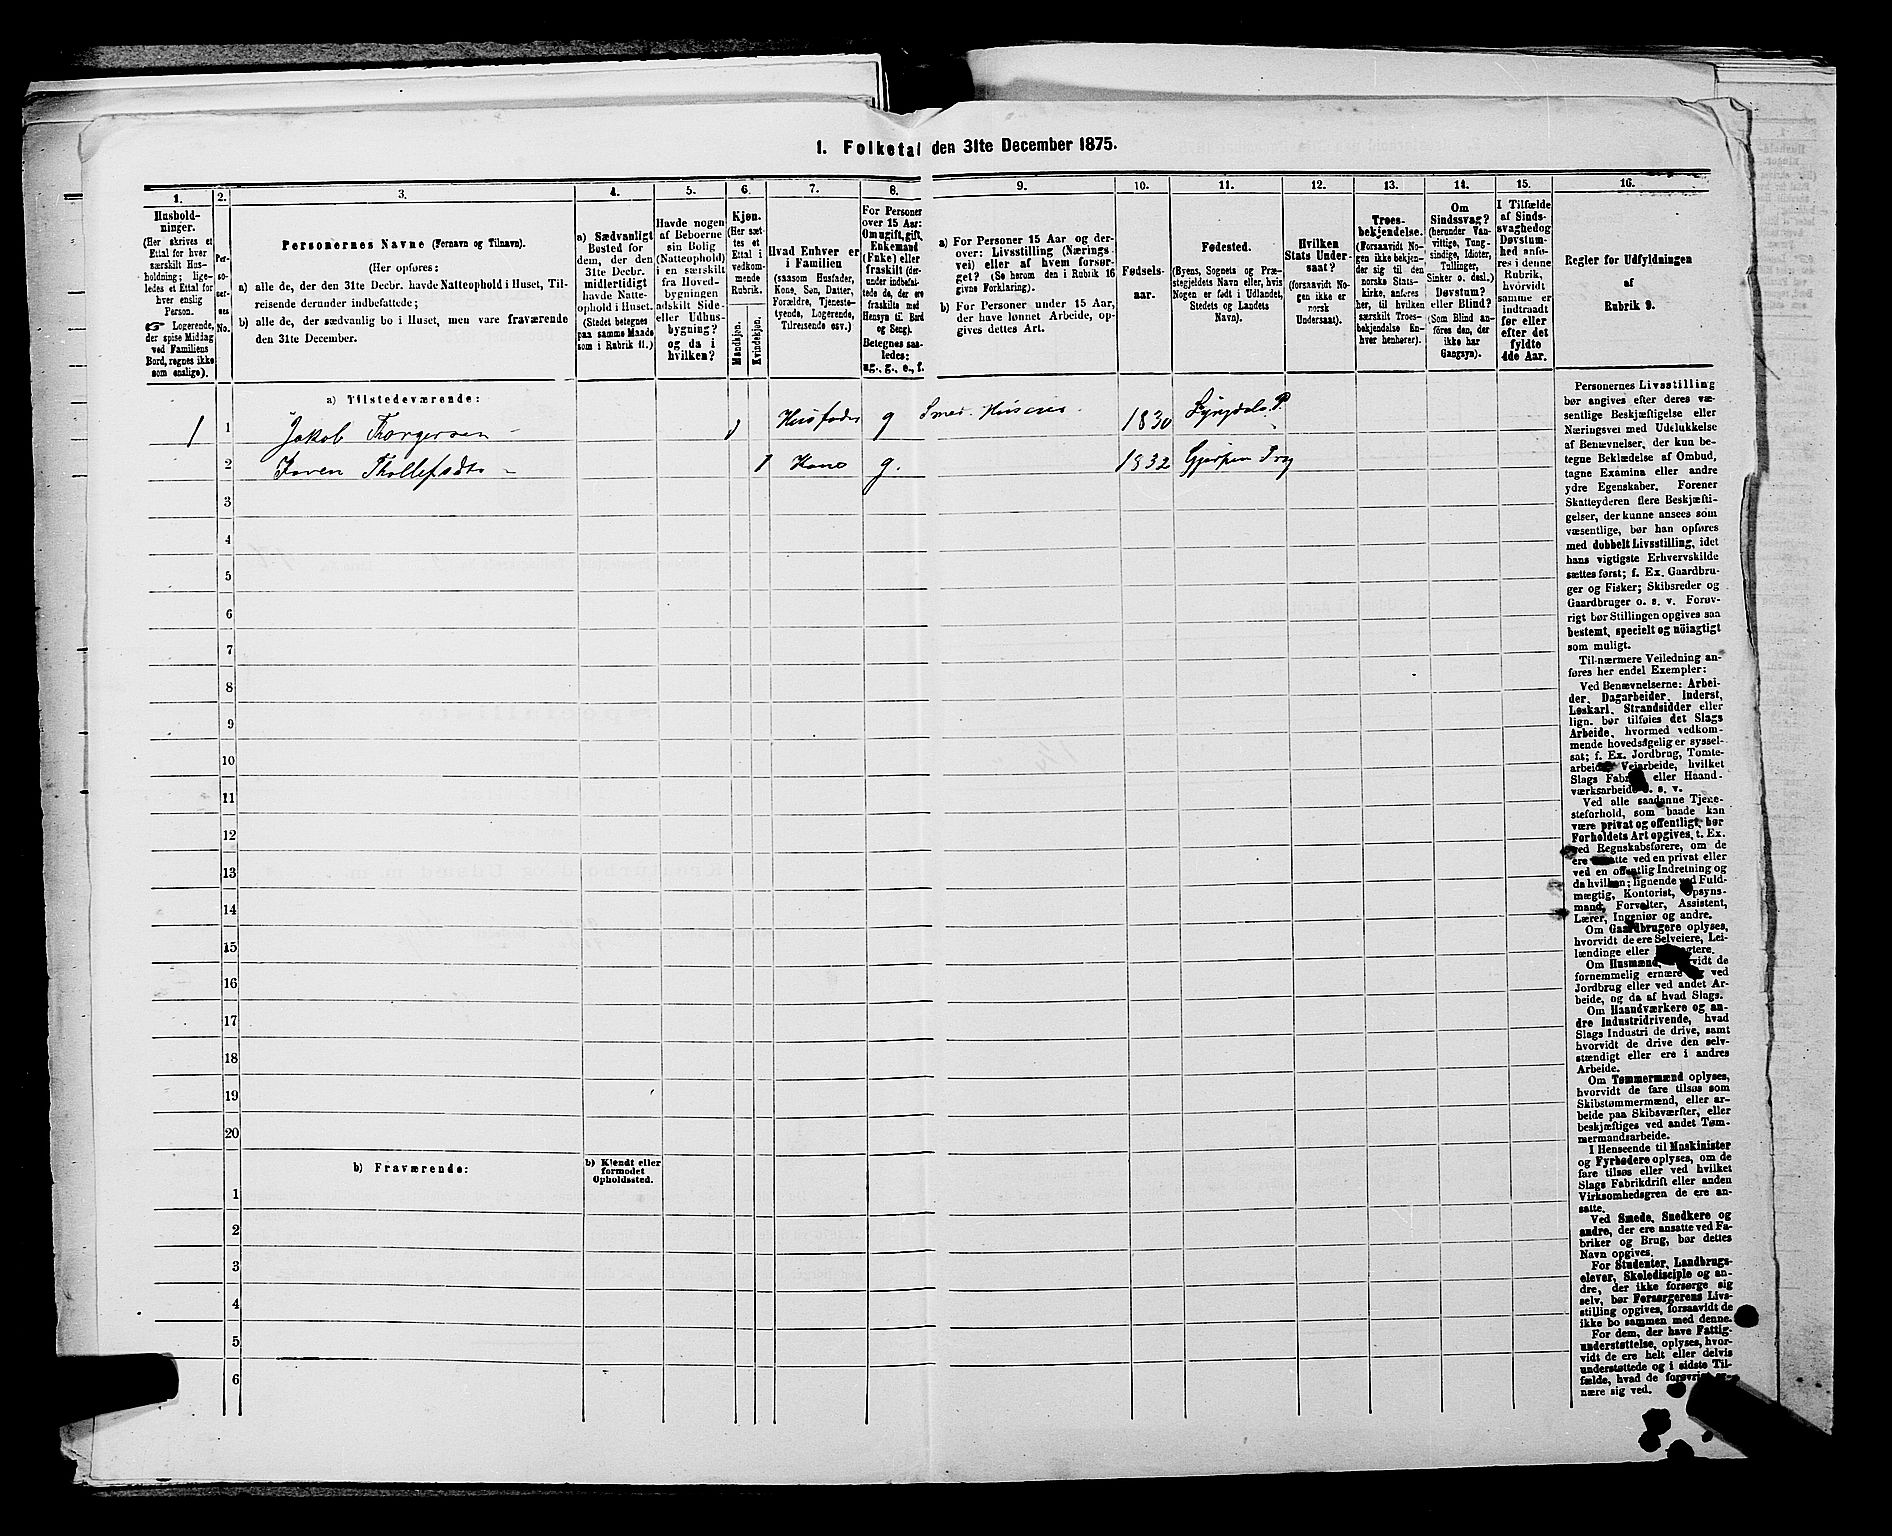 1. Folketal den 31te December 1875.
1.
2.
3.
4.
5.
6.
7.
8.
9.
10.
11.
12.
13.
14.
15.
16.
Hushold-
ninger.
(Her skrives et
Ettal for hver
særskilt Hus-
holdning; lige-
ledes et Ettal for
hver enslig
Person.
☞ Logerende,
der spise Middag
ved Familiens
Bord, regnes ikke
som enslige).
Per-
so-
ner-
nes
No.
Personernes Navne (Fornavn og Tilnavn).
(Her opføres:
a) alle de, der den 31te Decbr. havde Natteophold i Huset, Til-
reisende derunder indbefattede;
b) alle de, der sædvanlig bo i Huset, men vare fraværende
den 31te December.
a) Sædvanligt
Bosted for
dem, der den
31te Decbr.
midlertidigt
havde Natte-
ophold i Huset.
(Stedet betegnes
paa samme Maade
som i Rubrik 11.)
Havde nogen
af Beboerne
sin Bolig
(Natteophold)
i en særskilt
fra Hoved-
bygningen
adskilt Side-
eller Udhus-
bygning?
og da i
hvilken?
Kjøn.
(Her sæt-
tes et
Ettal i
vedkom-
mende
Rubrik.
Mandkjøn.
Kvindekjøn.
Hvad Enhver er
i Familien
(saasom Husfader,
Kone, Søn, Datter,
Forældre, Tjeneste-
tyende, Logerende,
Tilreisende osv.)
For Personer
over 15 Aar:
Om ugift, gift,
Enkemand
(Enke) eller
fraskilt (der-
under indbefat-
tede de, der ere
fraskilte med
Hensyn til Bord
og Seng).
Betegnes saa-
ledes:
ug., g., e., f.
a) For Personer 15 Aar og der-
over: Livsstilling (Nærings-
vei) eller af hvem forsør-
get? (Se herom den i Rubrik 16
givne Forklaring).
b) For Personer under 15 Aar,
der have lønnet Arbeide, op-
gives dettes Art.
Fødsels-
aar.
Fødested.
(Byens, Sognets og Præ-
stegjeldets Navn eller, hvis
Nogen er født i Udlandet,
Stedets og Landets
Navn).
Hvilken
Stats Under-
saat?
(forsaavidt No-
gen ikke er
norsk
Undersaat).
Troes-
bekjendelse.
(Forsaavidt No-
gen ikke bekjen-
der sig til den
norske Stats-
kirke, anføres
her, til hvilken
særskilt Troes-
bekjendelse En-
hver henhører).
Om
Sindssvag?
(herunder Van-
vittige, Tung-
sindige, Idioter,
Tullinger,
Sinker o. desl.)
Døvstum?
eller Blind?
(Som Blind an-
føres den, der
ikke har
Gangsyn).
I Tilfælde
af Sinds-
svaghed og
Døvstum-
hed anfø-
res i denne
Rubrik,
hvorvidt
samme er
indtraadt
før eller
efter det
fyldte
4de Aar.
Regler for Udfyldningen
af
Rubrik 9.
a) Tilstedeværende:
1 1 Jakob Torgersen Husfader g Smed. 1830 Lyngdals P.
2 1 Kone g. 1832 Gjerpen Prg
3
4
5
6
7
8
9
10
11
12
13
14
15
16
17
18
19
20
b) Fraværende:
b) Kjendt eller
formodet
Opholdssted.
1
2
3
4
5
6
Personernes Livsstilling
bør angives efter deres væ-
sentlige Beskjæftigelse eller
Næringsvei med Udelukkelse
af Benævnelser, der kun be-
tegne Beklædelse af Ombud,
tagne Examina eller andre
ydre Egenskaber. Forener
Skatteyderen flere Beskjæfti-
gelser, der kunne ansees som
væsentlige, bør han opføres
med dobbelt Livsstilling, idet
hans vigtigste Erhvervskilde
sættes først; f. Ex. Gaardbru-
ger og Fisker; Skibsreder og
Gaardbruger o. s. v. Forøv-
rigt bør Stillingen opgives saa
bestemt, specielt og nöiagtigt
som muligt.
Til nærmere Veiledning an-
føres her endel Exempler:
Ved Benævnelserne: Arbei-
der, Dagarbeider, Inderst,
Løskarl, Strandsidder eller
lign. bør tilføies det Slags
Arbeide, hvormed vedkom-
mende hovedsagelig er syssel-
sat; f. Ex. Jordbrug, Tomte-
arbeide, Veiarbeide, hvilket
Slags Fabrik- eller Haand-
værksarbeide o. s. v.
Ved alle saadanne Tjene-
steforhold, som baade kan
være privat og offentligt, bør
Forholdets Art opgives, t. Ex.
ved Regnskabsførere, om de
ere ansatte ved en privat eller
ved en offentlig Indretning og
da hvilken; lignende ved Fuld-
mægtig, Kontorist, Opsyns-
mand, Forvalter, Assistent,
Lærer, Ingeniør og andre.
Om Gaardbrugere oplyses,
hvorvidt de ere Selveiere, Lei-
lændinge eller Forpagtere.
Om Husmænd, hvorvidt de
fornemmelig ernære sig ved
Jordbrug eller ved andet Ar-
beide, og da af hvad Slags.
Om Haandværkere og an-
dre Industridrivende, hvad
Slags Industri de drive, samt
hvorvidt de drive den selv-
stændigt eller ere i andres
Arbeide.
Om Tømmermænd oplyses,
hvorvidt de fare tilsøs som
Skibstømmermænd, eller ar-
beide paa Skibsværfter, eller
beskjæftiges ved andet Tøm-
mermandsarbeide.
I Henseende til Maskinister
og Fyrbødere oplyses, om de
fare tilsøs eller ved hvilket
Slags Fabrikdrift eller anden
Virksomhedsgren de ere an-
satte.
Ved Smede, Snedkere og
andre, der ere ansatte ved Fa-
briker og Brug, bør dettes
Navn opgives.
For Studenter, Landbrugs-
elever, Skoledisciple og an-
dre, der ikke forsørge sig
selv, bør Forsørgerens Livs-
stilling opgives, forsaavidt de
ikke bo sammen med denne.
For dem, der have Fattig-
understøttelse, oplyses, hvor-
vidt de ere helt eller delvis
understøttede og i sidste Til-
fælde, hvad de forøvrigt er-
nære sig ved.